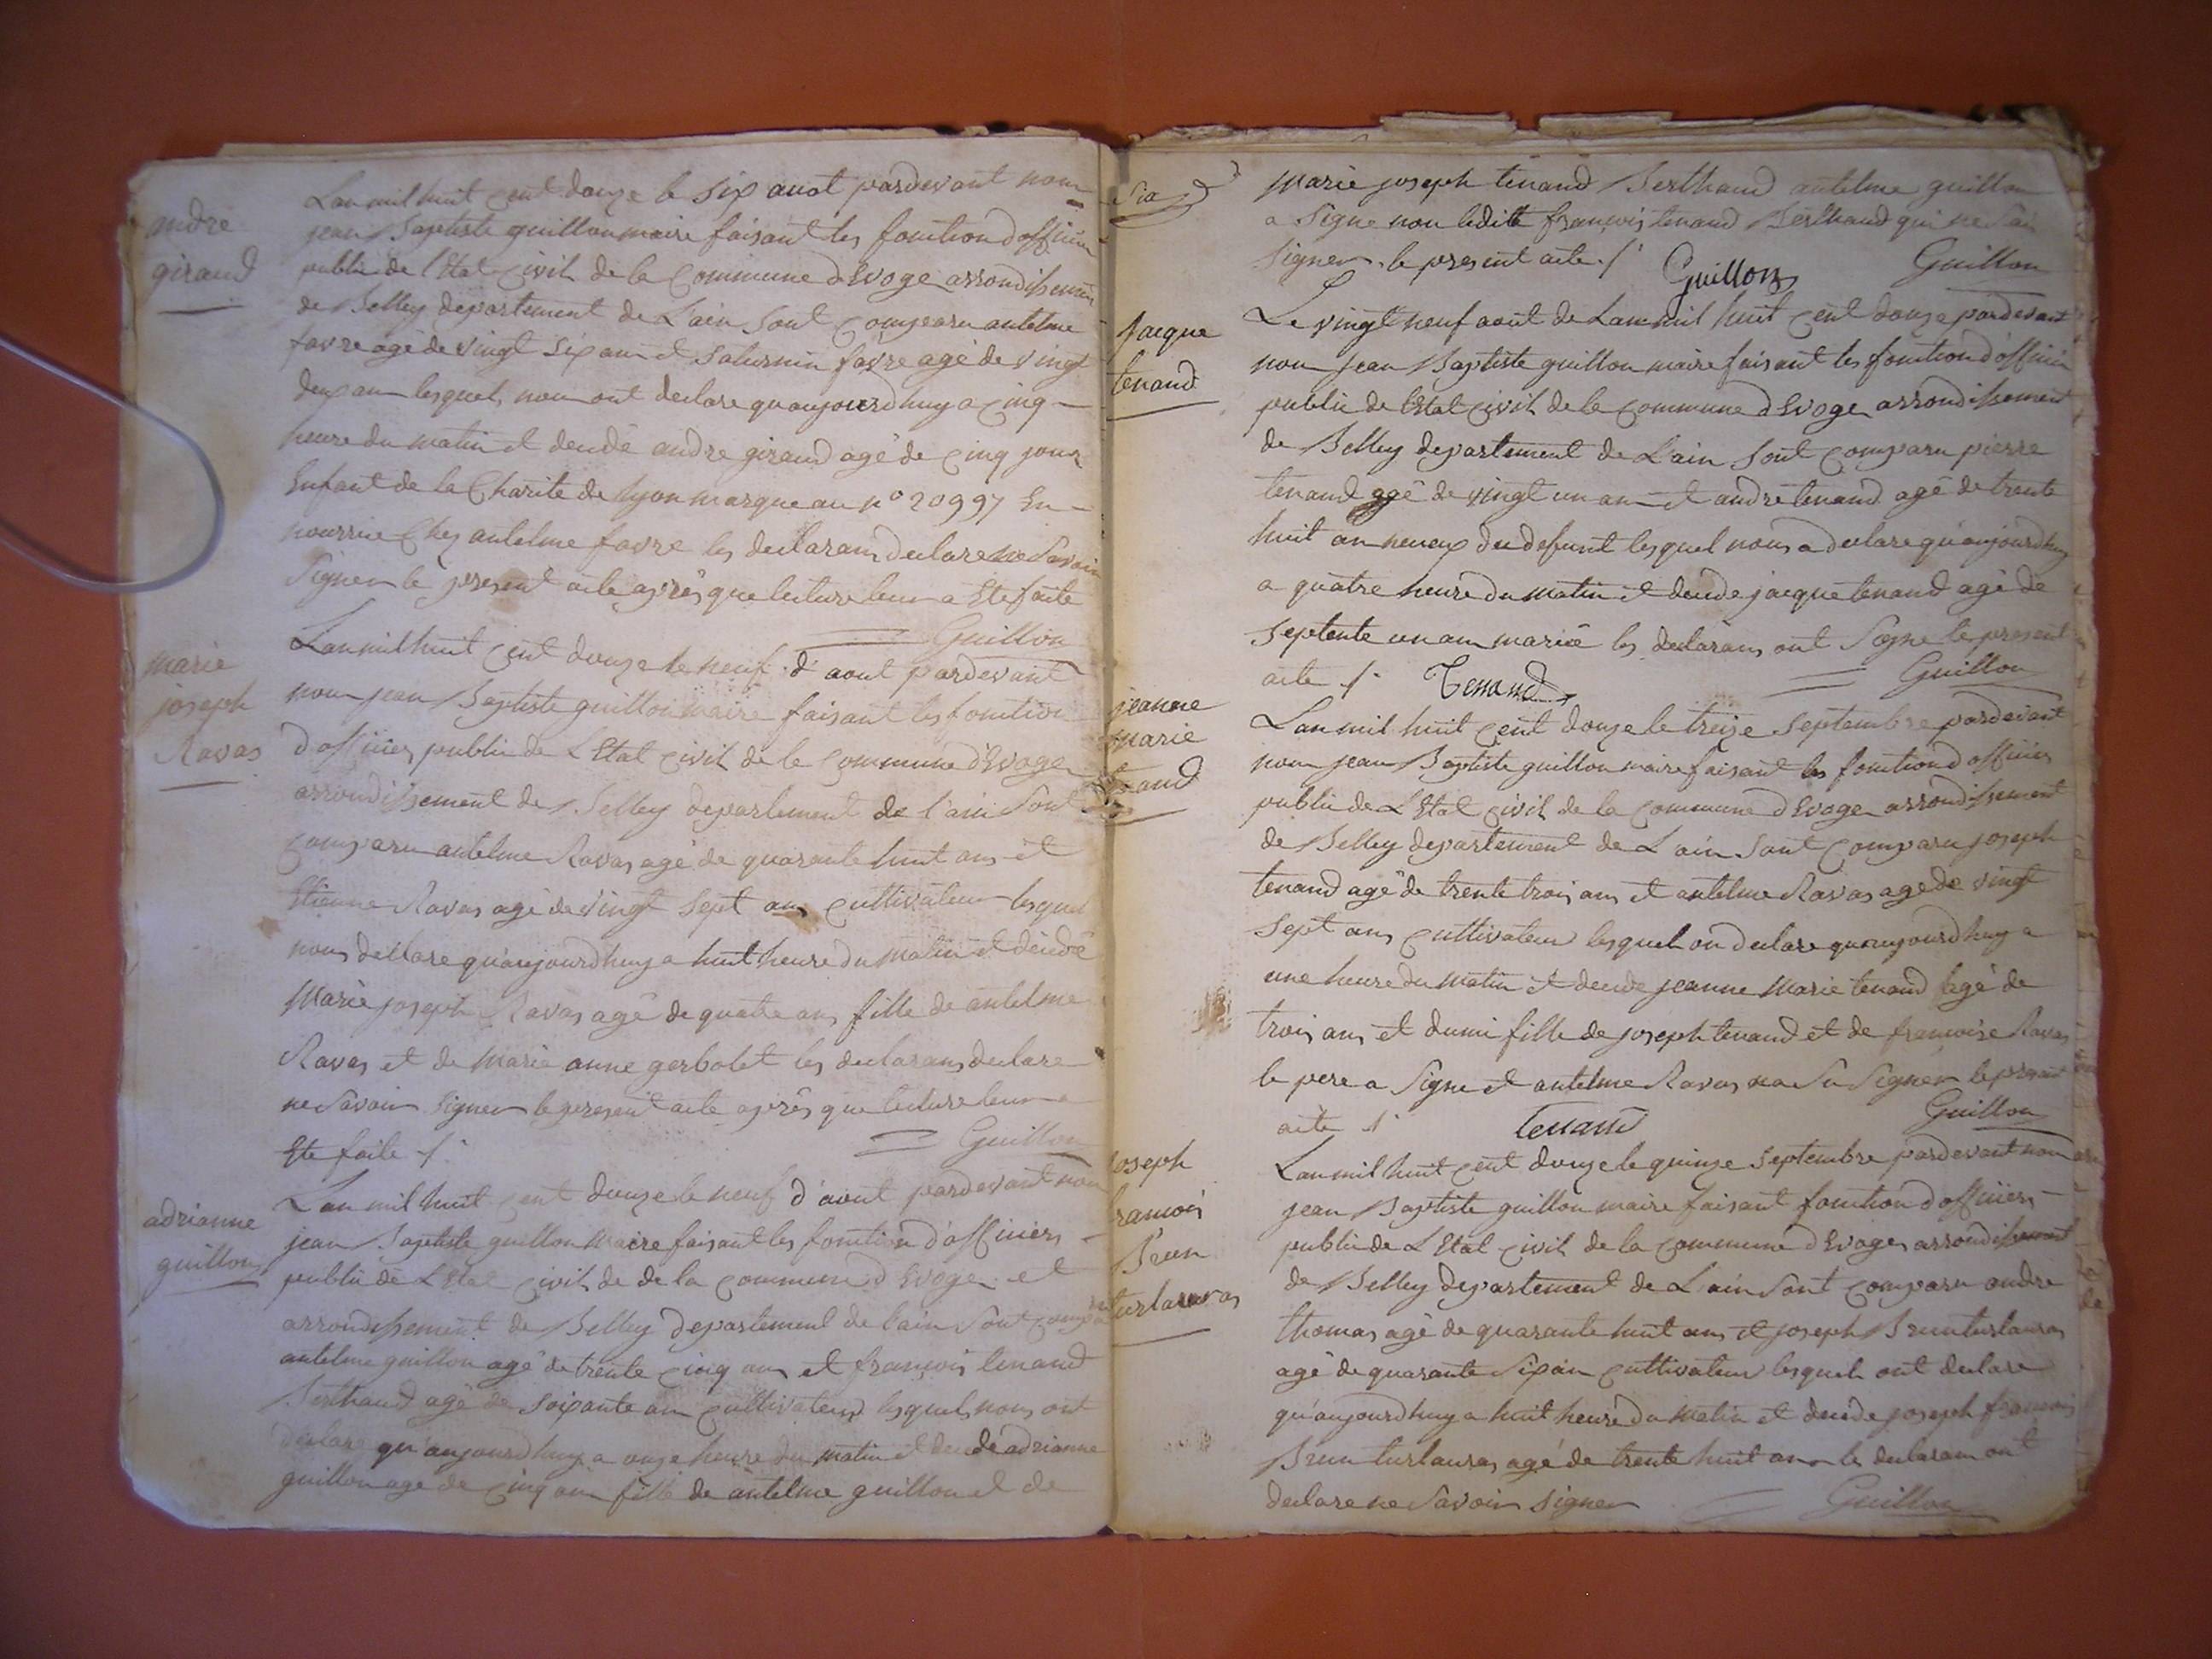 andre
giraud
Lan mil huit cent douze le six auot pardevant nous
jean Baptiste guillon maire faisant les fonction d'officier
public de l'Etat civil de la Commune d Evoge arrondissement
de Belley departement de L'ain sont comparu antelme
favre agé de vingt six an et saturnin favre agé de vingt
deux an lesquels nou ont declare quaujourdhuy a cinq
heure du matin et decedé andre giraud agé de cinq jour
Enfant de la Charite de lyon marque au n° 20997 En
nourrice Chez antelme favre les declarans declare ne Savoir
Signer le present acte après que lecture leur a Eté faite
Guillon
marie
joseph
Ravas
Lan mil huit cent douze le neuf d'aout pardevant
nous jean Baptiste guillon maire faisant les fonction
d'officier public de L'Etat civil de la Commune d'Evoge
arrondissement de Belley departement de l'ain Sont
comparu antelme Ravas agé de quarante huit ans et
Etienne Ravas agé de vingt sept ans cultivateur lesquel
nous declare qu'aujourdhuy a huit heure du matin et décédé
Marie joseph Ravas agé de quatre ans fille de antelme
Ravas et de Marie anne gerbolet les declarans declare
ne Savoir Signer le present acte après que lecture leur a
Ete faite /.
Guillon
adrianne
guillon
Lan mil huit cent douze le neuf d'aout pardevant nou
jean Baptiste guillon Maire faisant les fonction d'officiers
public de L'Etat civil de de la commune d Evoge et
arrondissement de Belley departement de l'ain Sont comparu
antelme guillon agé de trente cinq ans et françois tenand
Berthaud agé de soixante an cultivateur lesquels nous ont
declare qu'aujourdhuy a onze heure du matin et decedé adrianne
guillon age de cinq ans fille de antelme guillon et de
Marie joseph tenand Berthaud antelme guillon
a Signe non ledite françois tenand Berthaud qui ne sais
Signer le present acte /.
Guillon
Guillon
Jacque
tenand
Le vingt neuf aout de Lan mil huit cent douze pardevant
nou Jean Baptiste guillon maire faisant les fonction d'officier
public de L'Etat civil de la Commune d Evoge arrondissement
de Belley departement de L'ain Sont Comparu pierre
tenand agé de vingt un an et andré tenand agé de trente
huit an neveux du defunt lesquel nous a declare qu'aujourdhuy
a quatre heure du matin et decede jacque tenand agé de
septente un an marié les declarans ont Signe le present
acte /.
Tenand
Guillon
jeanne
marie
Lan mil huit cent douze le treize septembre pardevant
nou jean Baptiste guillon maire faisant les fonction d'officier
public de L'Etat civil de la commune d Evoge arrondissement
de Belley departement de L'ain Sont Comparu joseph
tenand agé de trente trois ans et antelme Ravas age de vingt
sept ans cultivateur lesquel on declare quaujourdhuy a
une heure du matin et decede jeanne Marie tenand agé de
trois ans et dumi fille de joseph tenand et de francoise Ravas
le pere a Signe et antelme Ravas na Su Signer le present
acte /.
tenand
Guillon
joseph
francois
Brun
turlauras
Lan mil huit cent douze le quinze septembre pardevant nou
jean Baptiste guillon maire faisant fonction d'officiers
public de L'Etat civil de la commune d Evoge arrondissement
de Belley departement de L'ain Sont comparu andre
thomas agé de quarante huit ans et joseph Brun turlauras
agé de quarante Six an cultivateur lesquels ont declare
qu'aujourdhuy a huit heure du matin et decede joseph francois
Brun turlauras agé de trente huit an les declarans ont
declare ne Savoir signer
Guillon